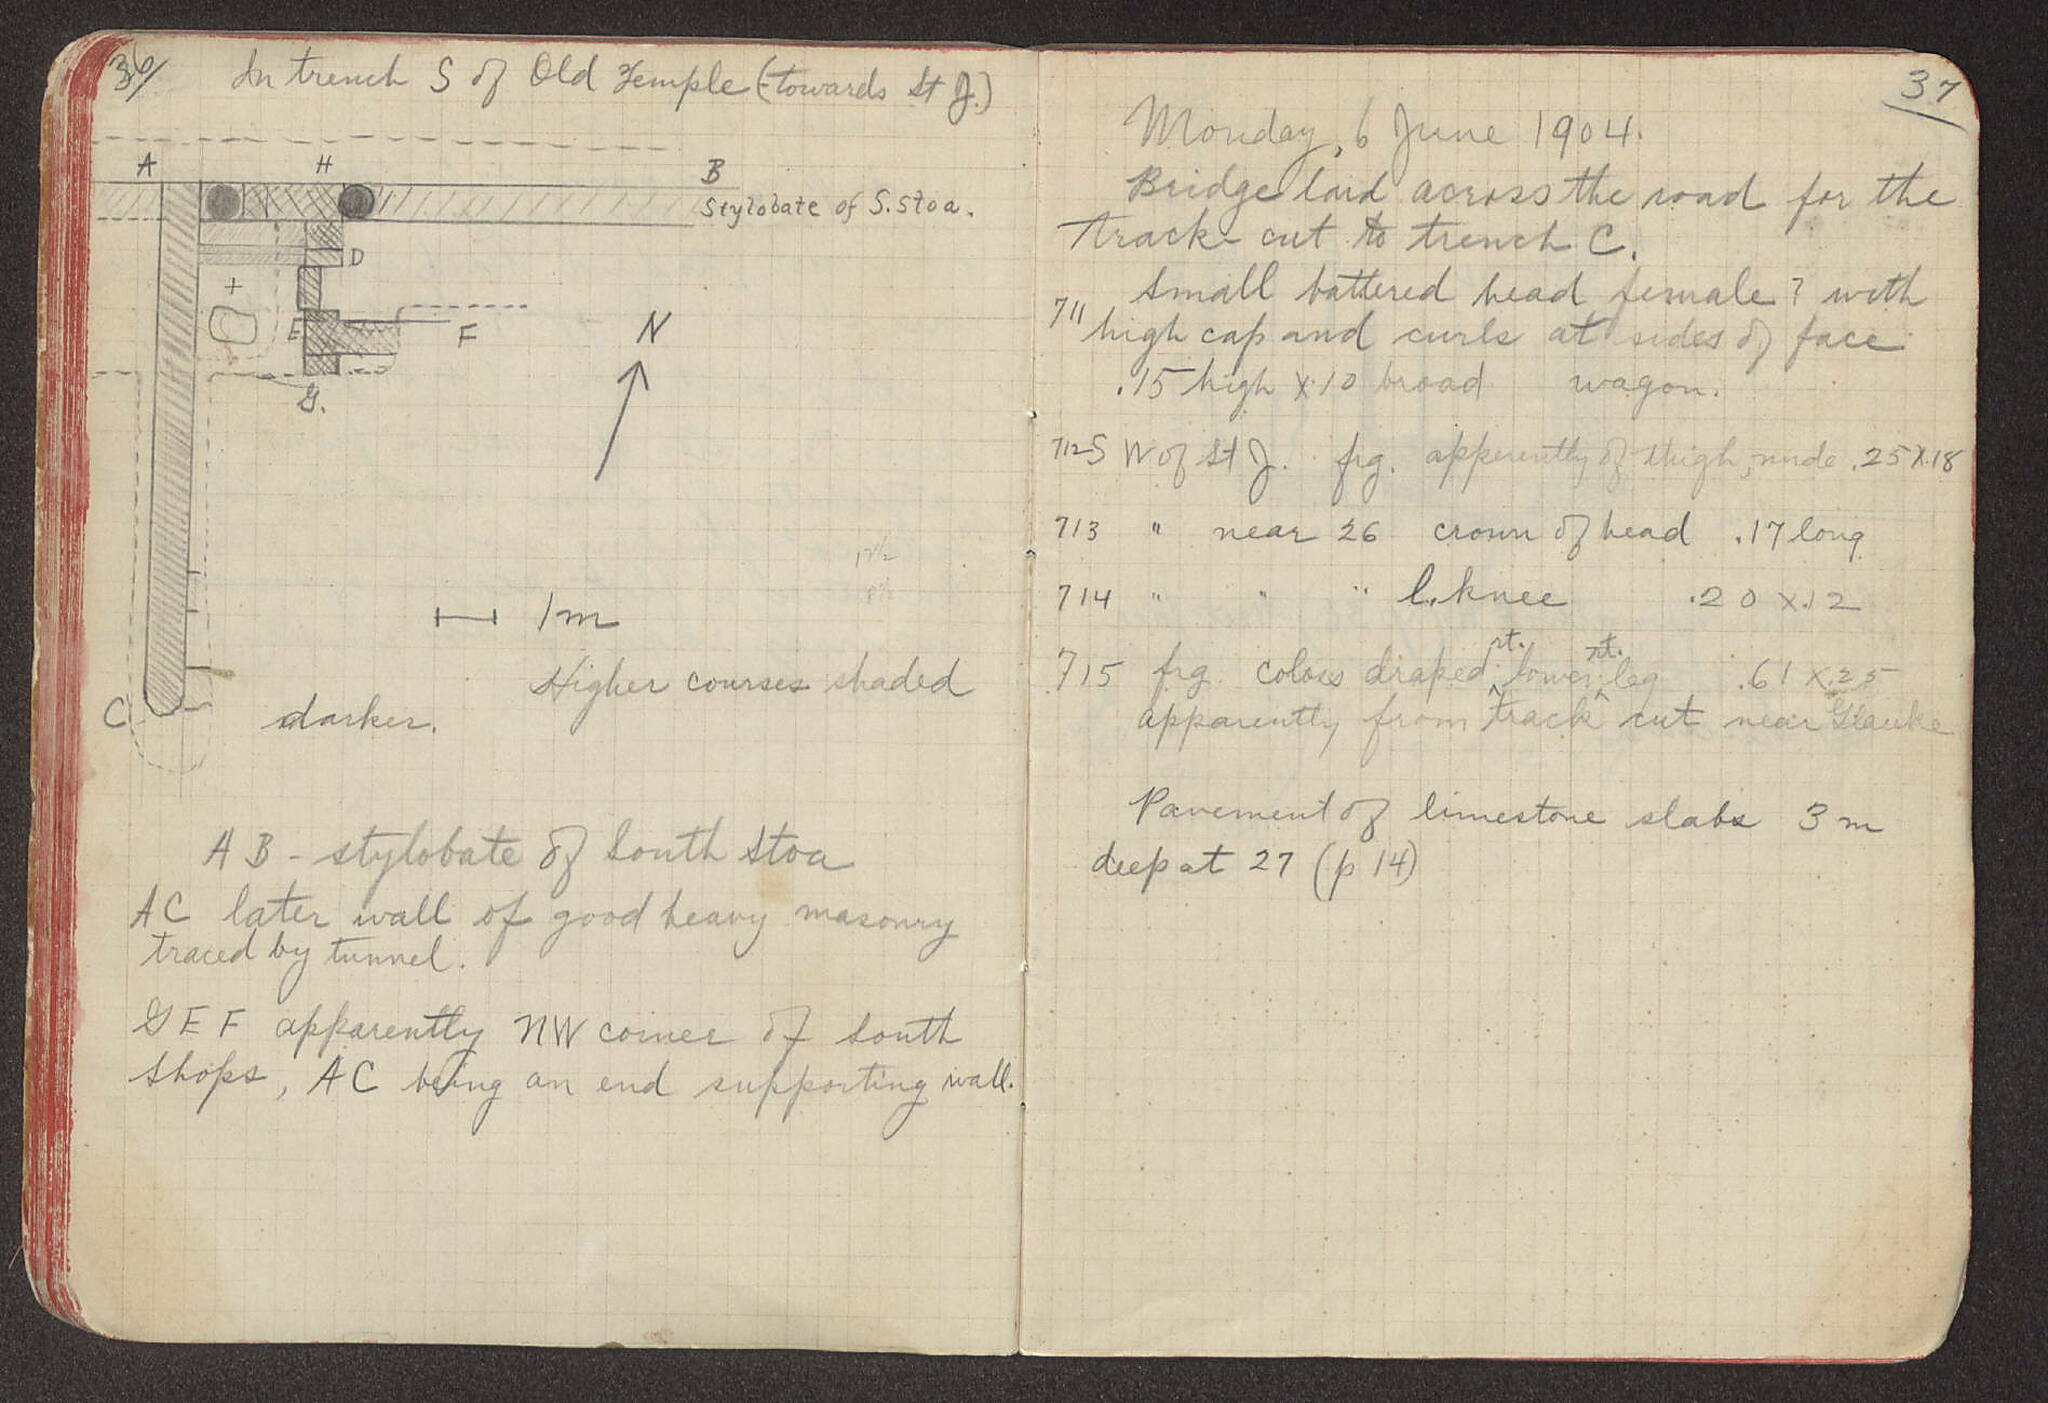 36
In trench S of Old Temple (towards St J.)
A H B
Stylobate of S. Stoa.
D
+
E F
G.
N
1m
Higher courses shaded
darker.
C
AB - stylobate of South Stoa
AC later wall of good heavy masonry
traced by tunnel.
GEF apparently NW corner of South
Shops, AC being an end supporting wall.
37
Monday, 6 June 1904.
Bridge laid across the road for the
track cut to trench C.
Small battered head female? with
711 high cap and curls at sides of face
.15 high x .10 broad wagon.
712 S W of St J. frg. apparently of thigh, nude .25 x .18
713 " near 26 crown of head .17 long
714 " " " l. knee .20 x .12
715 frg. coloss draped rt. lower rt. leg .61 x .25
apparently from track cut near Glauke
Pavement of limestone slabs 3 m
deep at 27 (p 14)